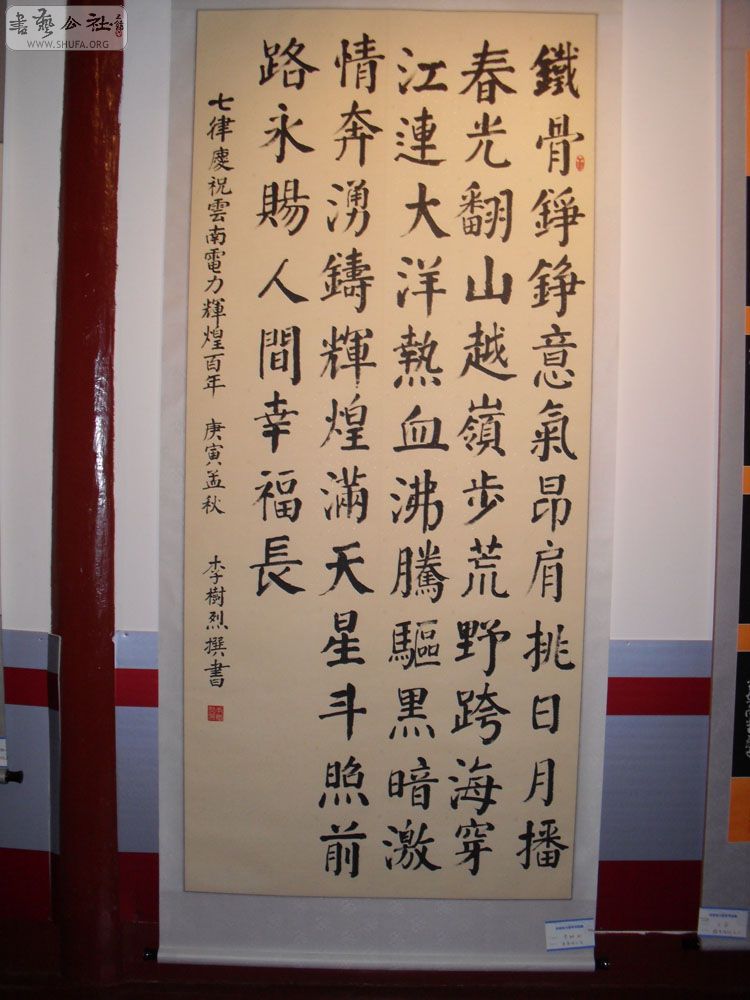 鐵骨錚錚意氣昂肩挑日月播
春光翻山越嶺步荒野跨海穿
江連大洋熱血沸騰驅黑暗激
情奔湧鑄輝煌滿天星斗照前
路永賜人間幸福長
七律慶祝雲南電力輝煌百年 庚寅孟秋 李樹烈撰書
書藝公社
WWW.SHUFA.ORG